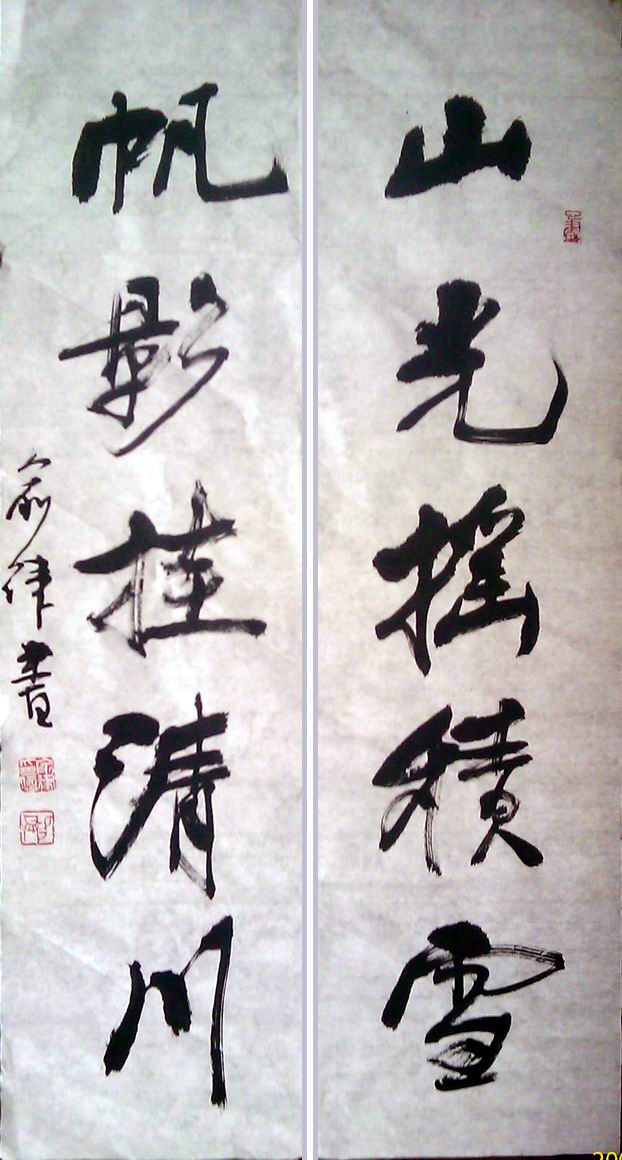 山光摇積雪
帆影挂清川
俞律書
200